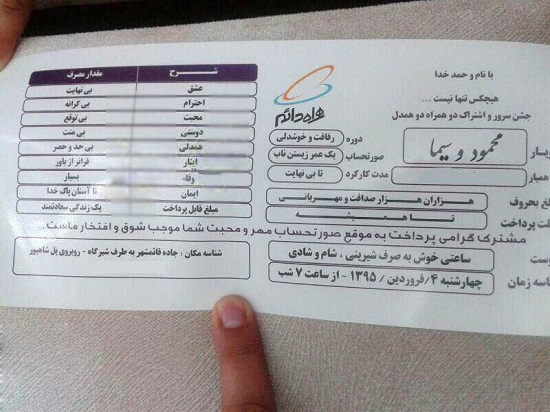 با نام و حمد خدا
هیچکس تنها نیست ...
جشن سرور و اشتراک دو همراه دو همدل
همراه دائم
محمود و سیما
دوره رفاقت و خوشدلی
صورتحساب یک عمر زیستن ناب
مدت کارکرد تا بی نهایت
همیار
هزاران هزار صداقت و مهربانی
پرداخت تا همیشه
شرح مقدار مصرف
عشق بی نهایت
احترام بی کرانه
محبت بی توقع
دوستی بی منت
همدلی بی حد و حصر
ایثار فراتر از باور
وفا بسیار
ایمان تا آستان پاک خدا
مبلغ قابل پرداخت یک زندگی سعادتمند
مشترک گرامی پرداخت به موقع صورتحساب مهر و محبت شما موجب شوق و افتخار ماست.
ساعتی خوش به صرف شیرینی ، شام و شادی
زمان چهارشنبه ۴/فروردین / ۱۳۹۵ - از ساعت ۷ شب
شناسه مکان : جاده قائمشهر به طرف شیرگاه - روبروی پل شاهپور